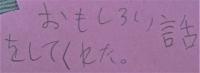 おもしろい話
をしてくれた。